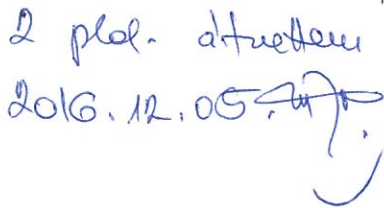 2 pld. átvettem
2016.12.05.